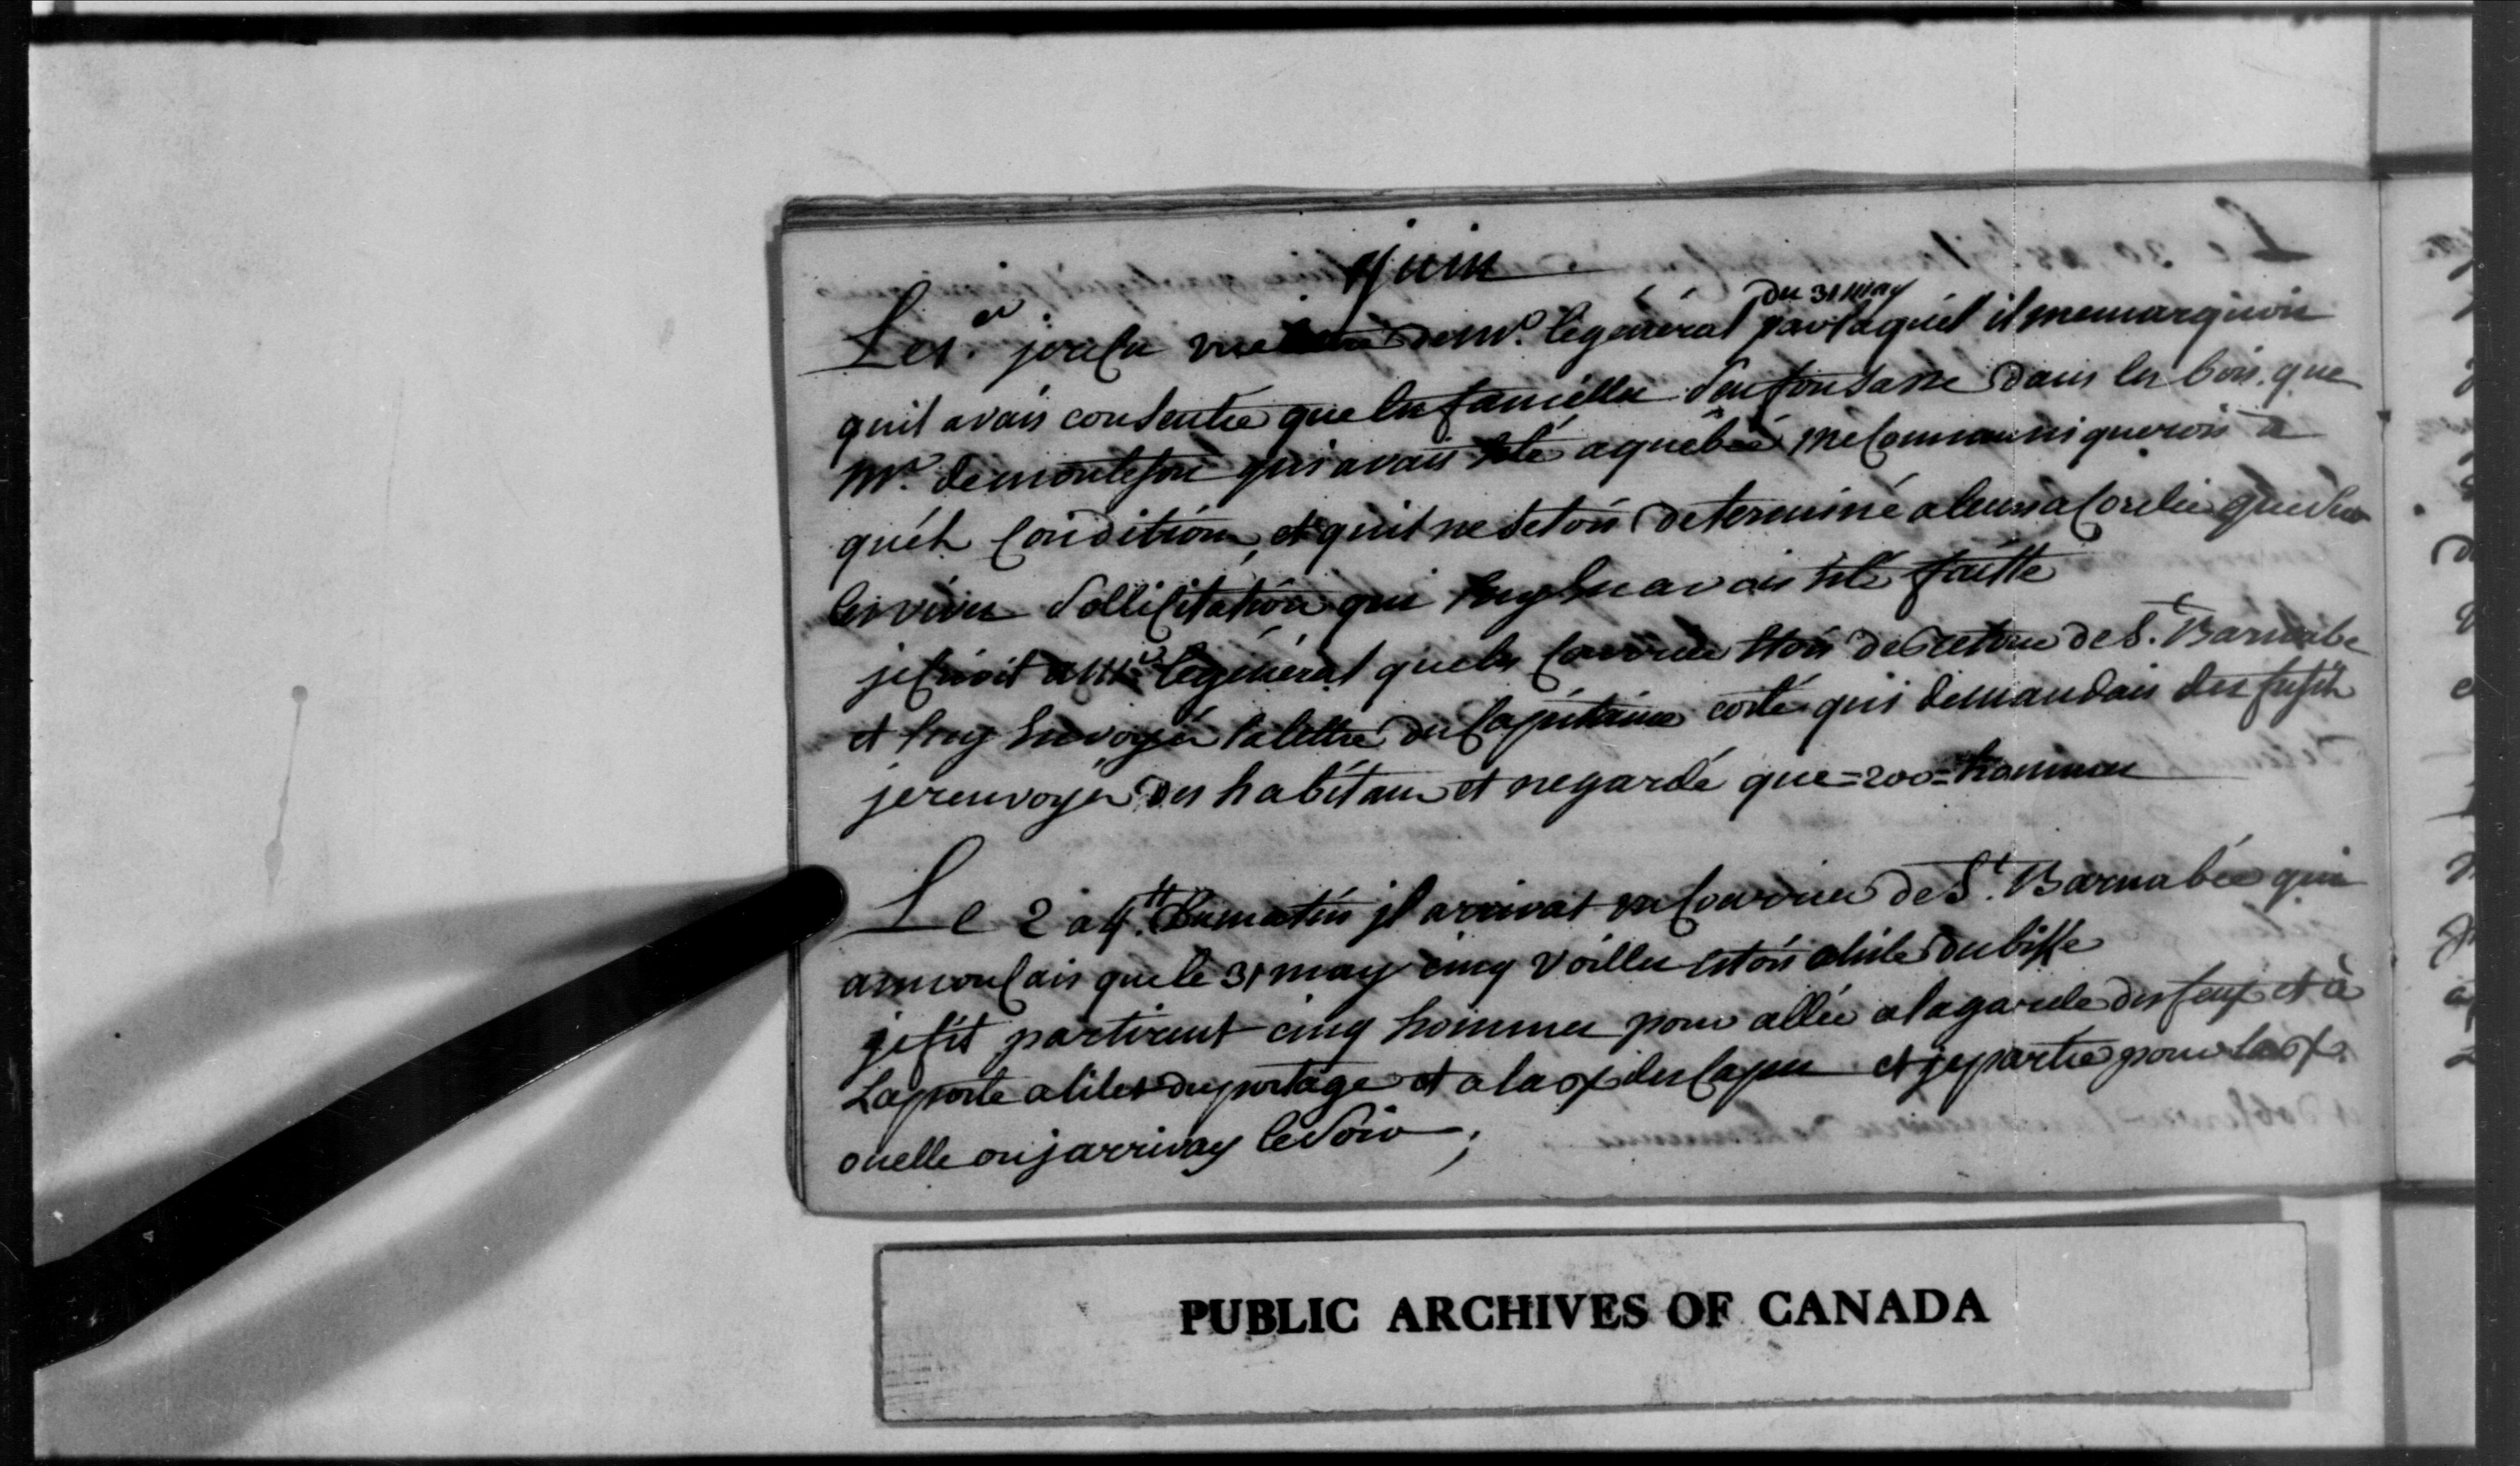 juin
Le 1.er une lettre de mr. le général par laquel il me marquois
du 31 may
quil avais consentie que les famille senfonsasse dans les bois. que
mr. de montesson qui avais été a quebec me communiqueroit à
quéls condition, et quil ne setois determiné a leurs acordée que sur
les vives sollicitation qui luy en avois été faitte
a mr. le général que les courrier etois de retour de St. Barnabé
et luy envoyér la lettre du capitaine coté qui demandais des fusils
je renvoyér des habitans et ne gardé que = 200 = hommes
Le 2 a 4.h du matin jl arrivat un courrier de St. Barnabée qui
annonsais que le 31 may cinq voilles etois a lile du biffe
je fit partirent cinq hommes pour allée a la garde des feux et à
Laporte a liles du portage et a la Rx. des capes et je partie pour la Rx.
ouelle ou jarrivay le soir ;
PUBLIC ARCHIVES OF CANADA